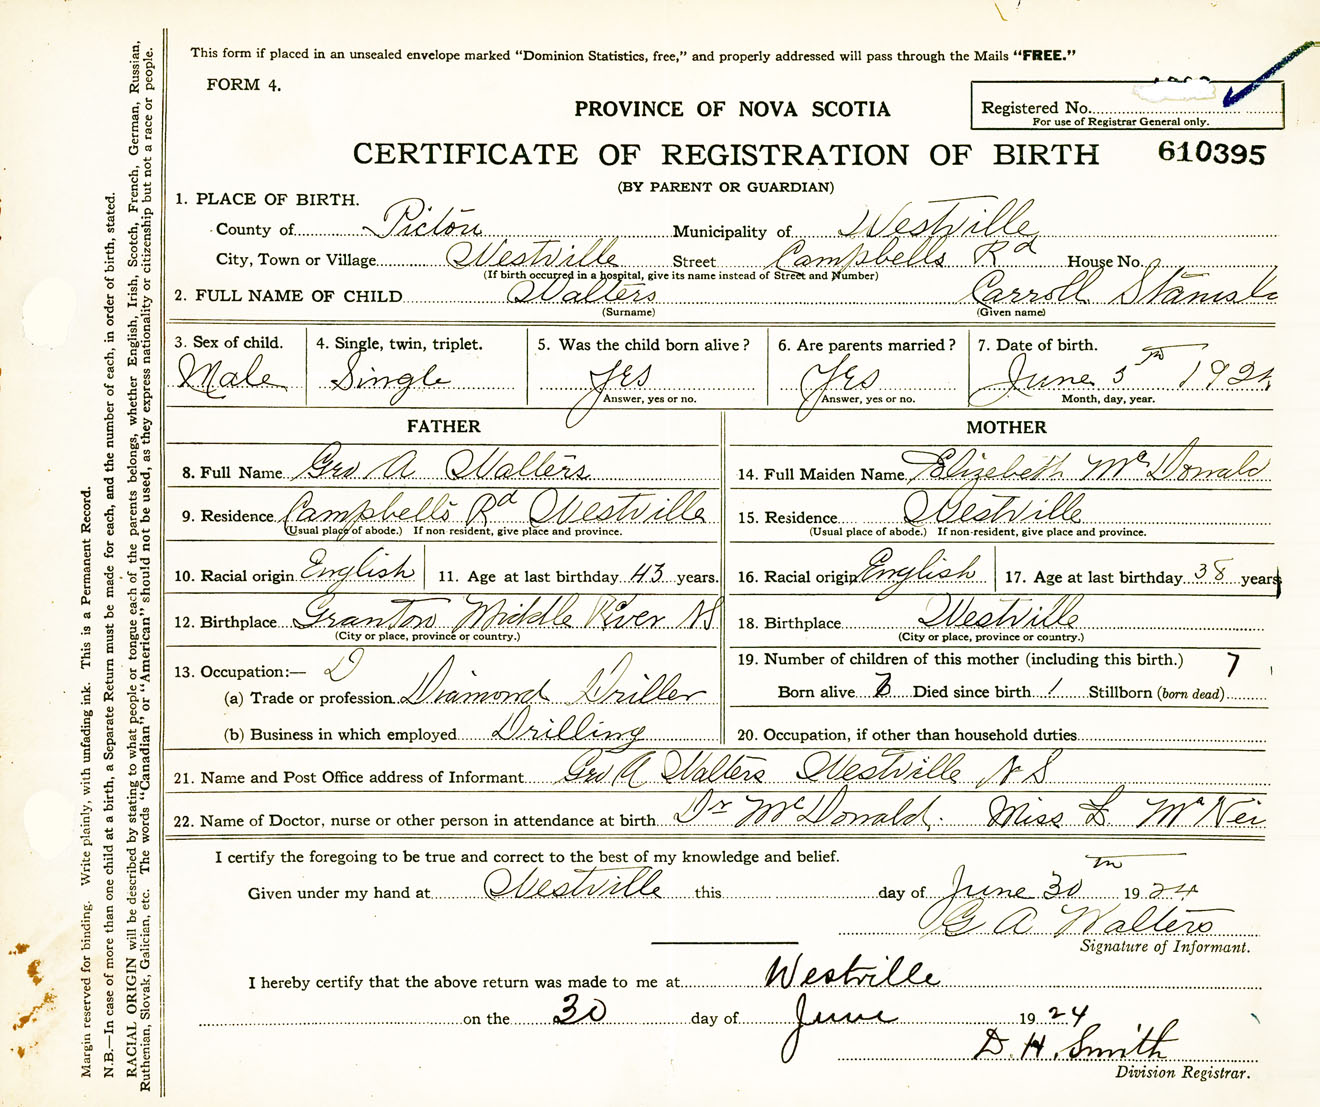 This form if placed in an unsealed envelope marked "Dominion Statistics, free," and properly addressed will pass through the Mails "FREE."
FORM 4.
Registered No.
For use of Registrar General only.
PROVINCE OF NOVA SCOTIA
CERTIFICATE OF REGISTRATION OF BIRTH 610395
(BY PARENT OR GUARDIAN)
1. PLACE OF BIRTH.
County of Pictou Municipality of Westville
City, Town or Village Westville Street Campbells Rd House No.
(If birth occurred in a hospital, give its name instead of Street and Number)
2. FULL NAME OF CHILD Walters Carroll Stanisla
(Surname) (Given name)
3. Sex of child. 4. Single, twin, triplet. 5. Was the child born alive? 6. Are parents married? 7. Date of birth.
Male Single Yes Yes June 5th 1924
Answer, yes or no. Answer, yes or no. Month, day, year.
FATHER
8. Full Name Geo A Walters
9. Residence Campbells Rd Westville
(Usual place of abode.) If non resident, give place and province.
10. Racial origin English 11. Age at last birthday 43 years.
12. Birthplace Granton Middle River NS
(City or place, province or country.)
13. Occupation:— D
(a) Trade or profession Diamond Driller
(b) Business in which employed Drilling
MOTHER
14. Full Maiden Name Elizebeth McDonald
15. Residence Westville
(Usual place of abode.) If non-resident, give place and province.
16. Racial origin English 17. Age at last birthday 38 years
18. Birthplace Westville
(City or place, province or country.)
19. Number of children of this mother (including this birth.) 7
Born alive Died since birth 1 Stillborn (born dead)
20. Occupation, if other than household duties
21. Name and Post Office address of Informant Geo A Walters Westville N S
22. Name of Doctor, nurse or other person in attendance at birth Dr McDonald. Miss L McNei
I certify the foregoing to be true and correct to the best of my knowledge and belief.
Given under my hand at Westville this day of June 30th 1924
G A Walters
Signature of Informant.
I hereby certify that the above return was made to me at Westville
on the 30 day of June 1924
D. H. Smith
Division Registrar.
Margin reserved for binding. Write plainly, with unfading ink. This is a Permanent Record.
N.B.—In case of more than one child at a birth, a Separate Return must be made for each, and the number of each, in order of birth, stated.
RACIAL ORIGIN will be described by stating to what people or tongue each of the parents belongs, whether English, Irish, Scotch, French, German, Russian,
Ruthenian, Slovak, Galician, etc. The words "Canadian" or "American" should not be used, as they express nationality or citizenship but not a race or people.